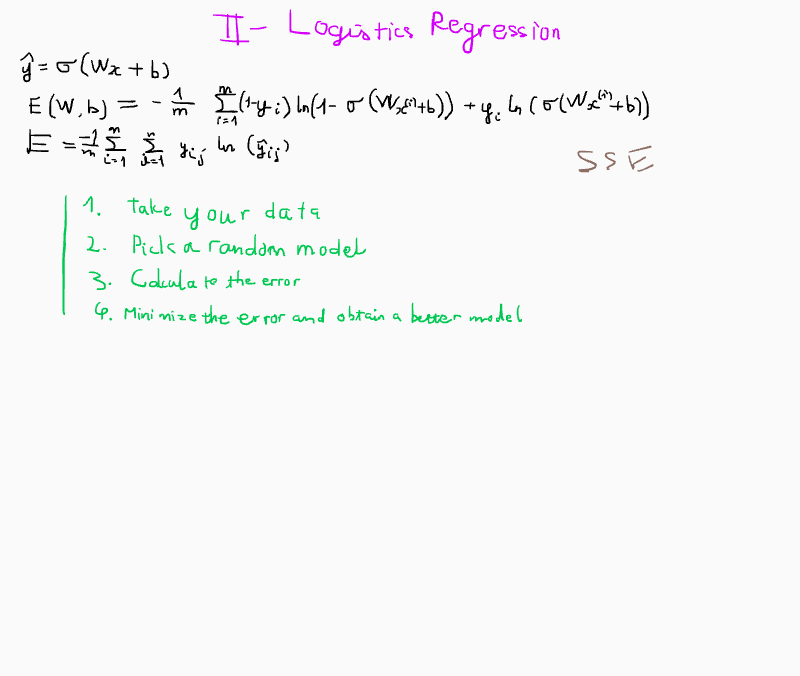 II- Logistics Regression
ŷ = σ(Wx + b)
E(W,b) = -1/m Σ_{i=1}^{m} (1-y_i) ln(1 - σ(Wx^(i)+b)) + y_i ln(σ(Wx^(i)+b))
E = -1/m Σ_{i=1}^{m} Σ_{j=1}^{n} y_ij ln(ŷ_ij)
SSE
1. Take your data
2. Pick a random model
3. Calculate the error
4. Minimize the error and obtain a better model